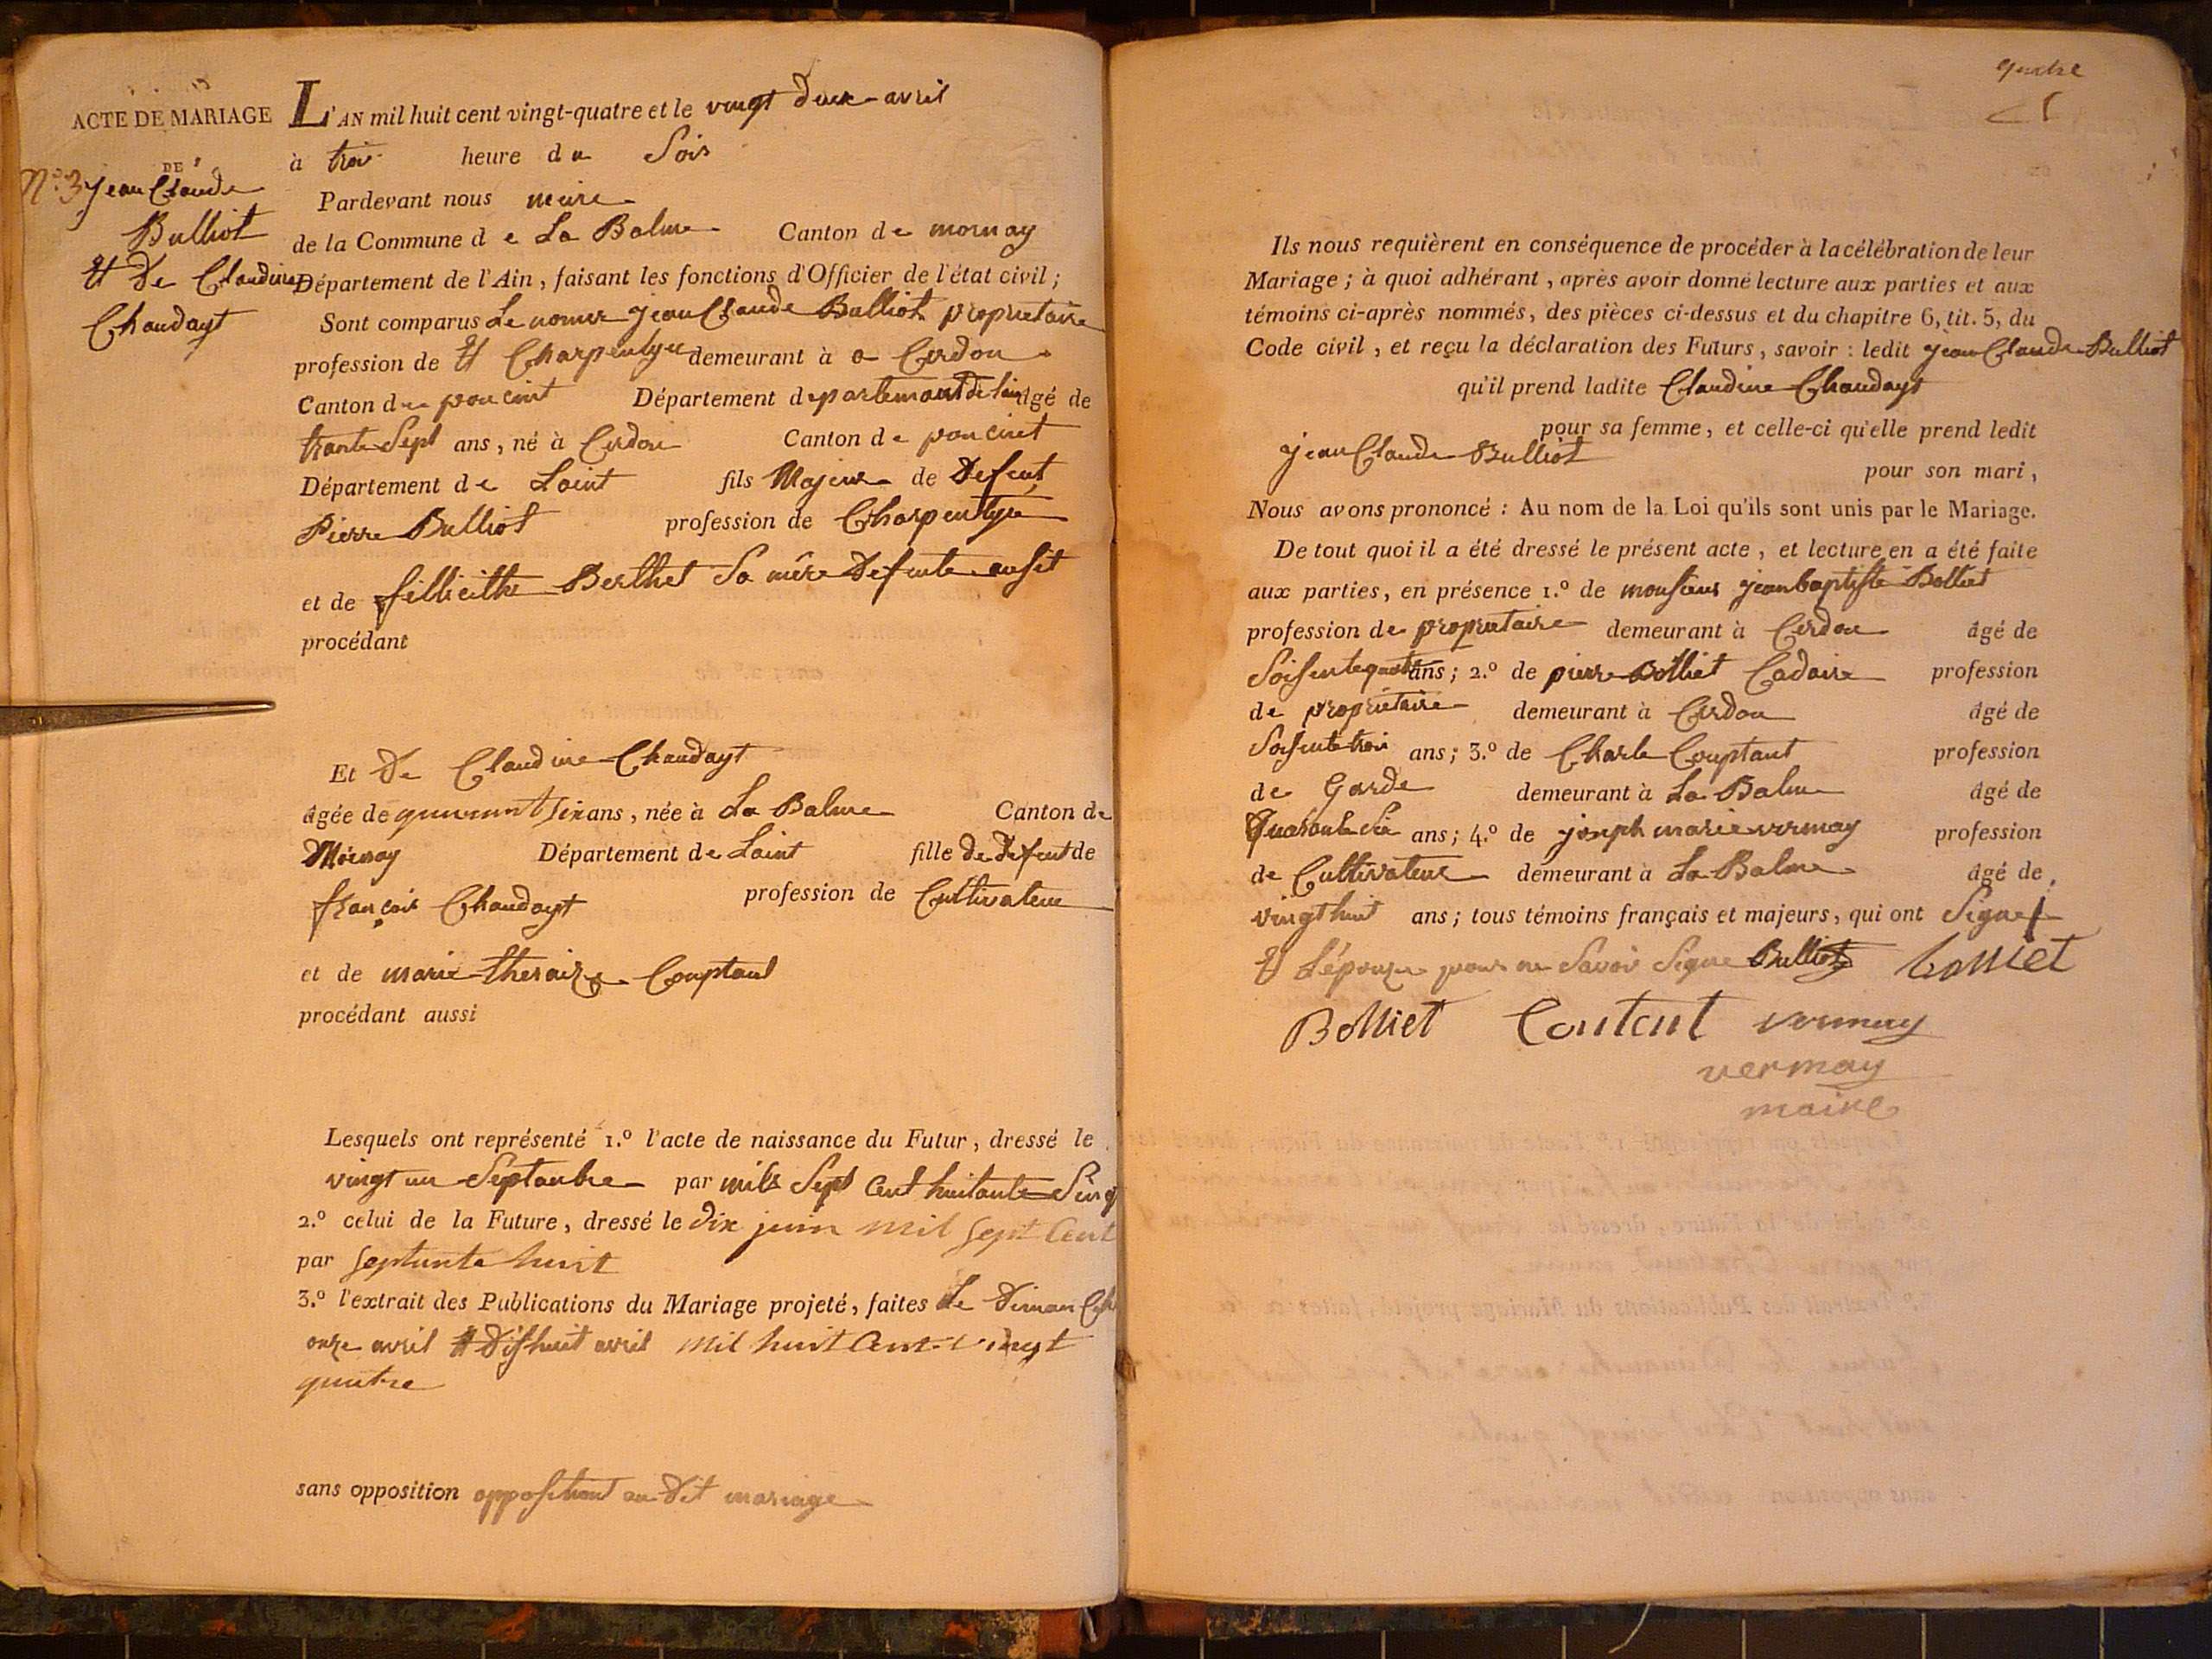 ACTE DE MARIAGE
DE
N.º 3 jean Claude
Bulliot
Et De Claudine
Chaudayt
L'AN mil huit cent vingt-quatre et le vingt deux avril
à troi heure du Soir
Pardevant nous maire
de la Commune de La Balme Canton de mornay
Département de l'Ain, faisant les fonctions d'Officier de l'état civil;
Sont comparus Le nomer jean Claude Bulliot propriétaire
profession de Et Charpentyer demeurant à a Cerdon
Canton de poncint Département departemant de lain âgé de
trante Sept ans, né à Cerdon Canton de poncint
Département de Laint fils Majeur de Defeut
Pierre Bulliot profession de Charpentyé
et de fillicithe Berthet Sa mère Defeute ausit
procédant
Et De Claudine Chaudayt
âgée de quarant Six ans, née à La Balme Canton de
Mornay Département de Laint fille de Defeut de
françois Chaudayt profession de Cultivateur
et de marie theraize Couptant
procédant aussi
Lesquels ont représenté 1.º l'acte de naissance du Futur, dressé le
vingt un Septanbre par mils Sept Cent huitante Sinq
2.º celui de la Future, dressé le dix juin mil Sept Cent
par Septante huit
3.º l'extrait des Publications du Mariage projeté, faites Le Dimanche
onze avril Et Dishuit avril mil huit Cent vingt
quatre
sans opposition oppositiont au Dit mariage
quatre
Ils nous requièrent en conséquence de procéder à la célébration de leur
Mariage; à quoi adhérant, après avoir donné lecture aux parties et aux
témoins ci-après nommés, des pièces ci-dessus et du chapitre 6, tit. 5, du
Code civil, et reçu la déclaration des Futurs, savoir: ledit jean Claude Bulliot
qu'il prend ladite Claudine Chaudayt
pour sa femme, et celle-ci qu'elle prend ledit
jean Claude Bulliot
pour son mari,
Nous avons prononcé: Au nom de la Loi qu'ils sont unis par le Mariage.
De tout quoi il a été dressé le présent acte, et lecture en a été faite
aux parties, en présence 1.º de monsieur jean baptiste Bolliet
profession de propriétaire demeurant à Cerdon âgé de
Soisente quatr ans; 2.º de pierre Bolliet Cadaire profession
de propriétaire demeurant à Cerdon âgé de
Soisente troi ans; 3.º de Charle Couptant profession
de Garde demeurant à La Balme âgé de
Quarante Six ans; 4.º de joseph marie vermay profession
de Cultivateur demeurant à La Balme âgé de
vingt huit ans; tous témoins français et majeurs, qui ont Signe
Et L'épouse pour ne Savoir Signe Bulliot bolliet
Bolliet Contant vermay
vermay
maire